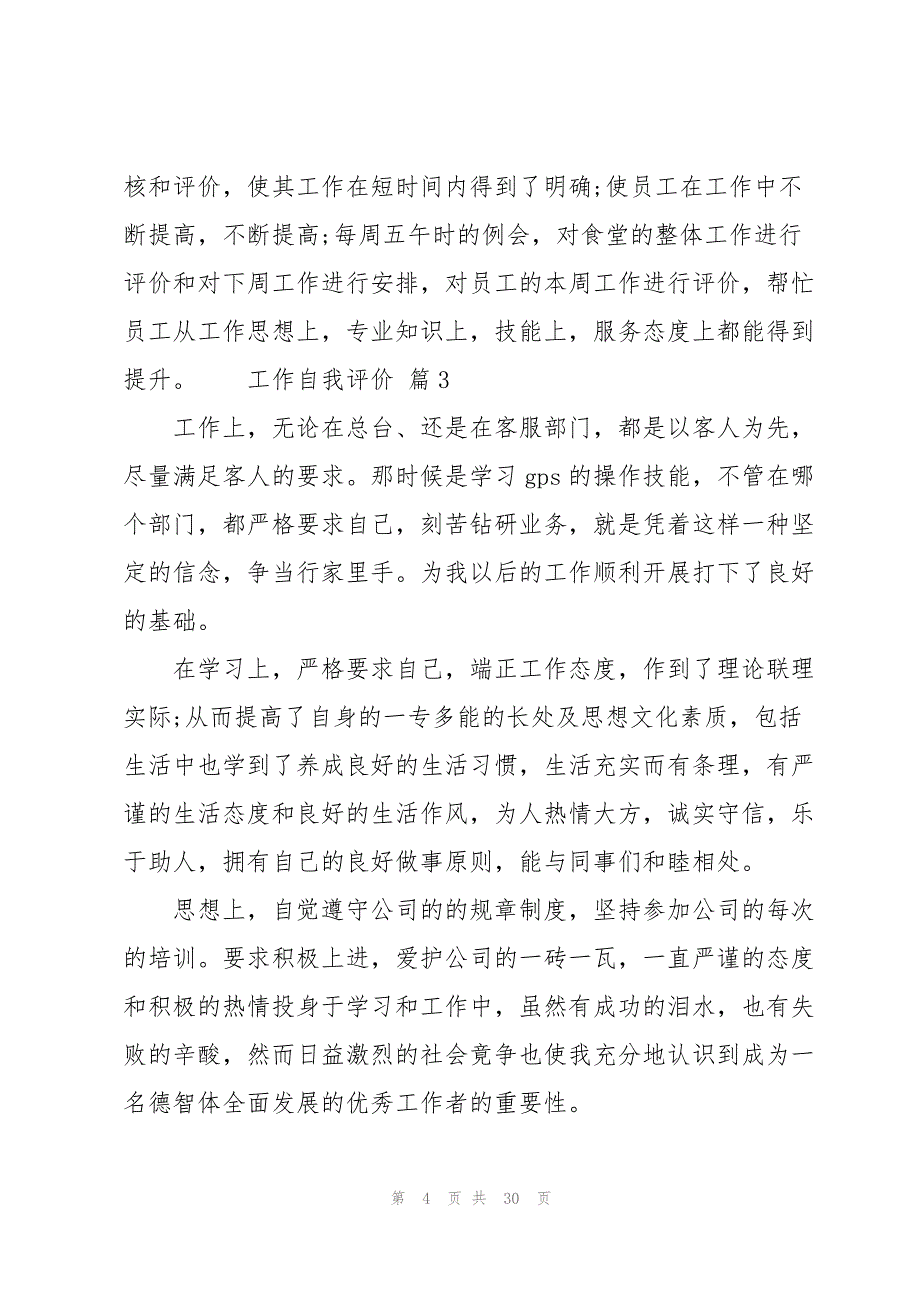 核和评价，使其工作在短时间内得到了明确;使员工在工作中不
断提高，不断提高;每周五午时的例会，对食堂的整体工作进行
评价和对下周工作进行安排，对员工的本周工作进行评价，帮忙
员工从工作思想上，专业知识上，技能上，服务态度上都能得到
提升。 工作自我评价 篇3
工作上，无论在总台、还是在客服部门，都是以客人为先，
尽量满足客人的要求。那时候是学习 gps 的操作技能，不管在哪
个部门，都严格要求自己，刻苦钻研业务，就是凭着这样一种坚
定的信念，争当行家里手。为我以后的工作顺利开展打下了良好
的基础。
在学习上，严格要求自己，端正工作态度，作到了理论联理
实际;从而提高了自身的一专多能的长处及思想文化素质，包括
生活中也学到了养成良好的生活习惯，生活充实而有条理，有严
谨的生活态度和良好的生活作风，为人热情大方，诚实守信，乐
于助人，拥有自己的良好做事原则，能与同事们和睦相处。
思想上，自觉遵守公司的的规章制度，坚持参加公司的每次
的培训。要求积极上进，爱护公司的一砖一瓦，一直严谨的态度
和积极的热情投身于学习和工作中，虽然有成功的泪水，也有失
败的辛酸，然而日益激烈的社会竟争也使我充分地认识到成为一
名德智体全面发展的优秀工作者的重要性。
第 4 页 共 30 页